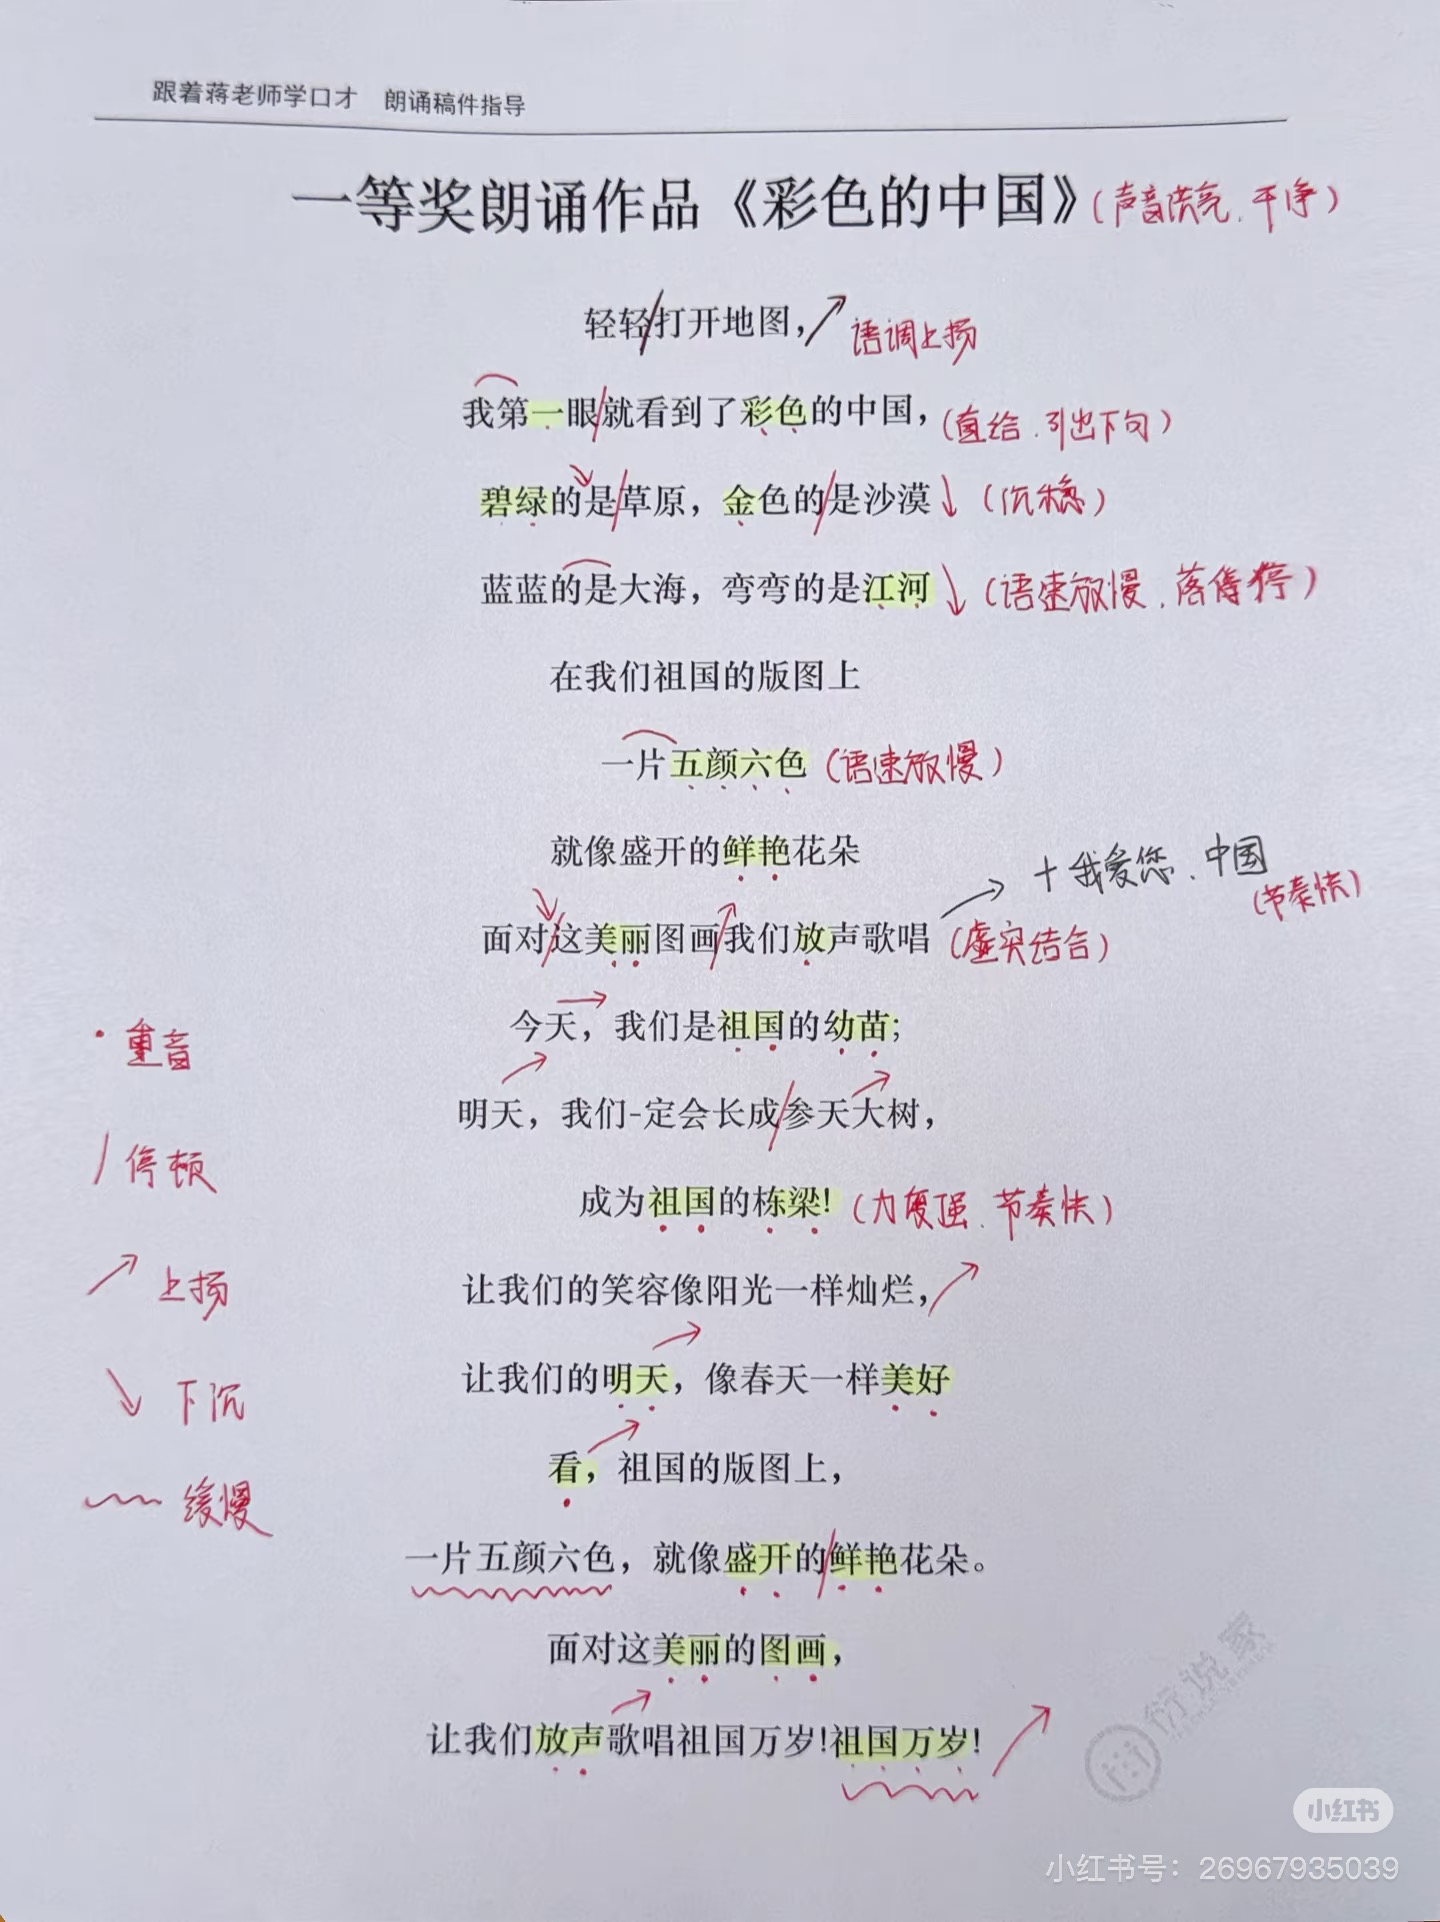 跟着蒋老师学口才 朗诵稿件指导
一等奖朗诵作品《彩色的中国》(声音洪亮、干净)
轻轻/打开地图，↗ 语调上扬
我第一眼/就看到了彩色的中国，(直给、引出下句)
碧绿的是/草原，金色的/是沙漠↓(沉稳)
蓝蓝的是大海，弯弯的是江河↓(语速放慢、落得停)
在我们祖国的版图上
一片五颜六色(语速放慢)
就像盛开的鲜艳花朵
十我爱您、中国
(节奏快)
面对/这美丽图画/我们放声歌唱(虚实结合)
今天，我们是祖国的幼苗;
明天，我们-定会长成/参天大树，
成为祖国的栋梁!(力度强、节奏快)
让我们的笑容像阳光一样灿烂，
让我们的明天，像春天一样美好
看，祖国的版图上，
一片五颜六色，就像盛开的/鲜艳花朵。
面对这美丽的图画，
让我们放声歌唱祖国万岁!祖国万岁!
·重音
/停顿
↗上扬
↘下沉
﹏缓慢
衍说家
小红书
小红书号：26967935039